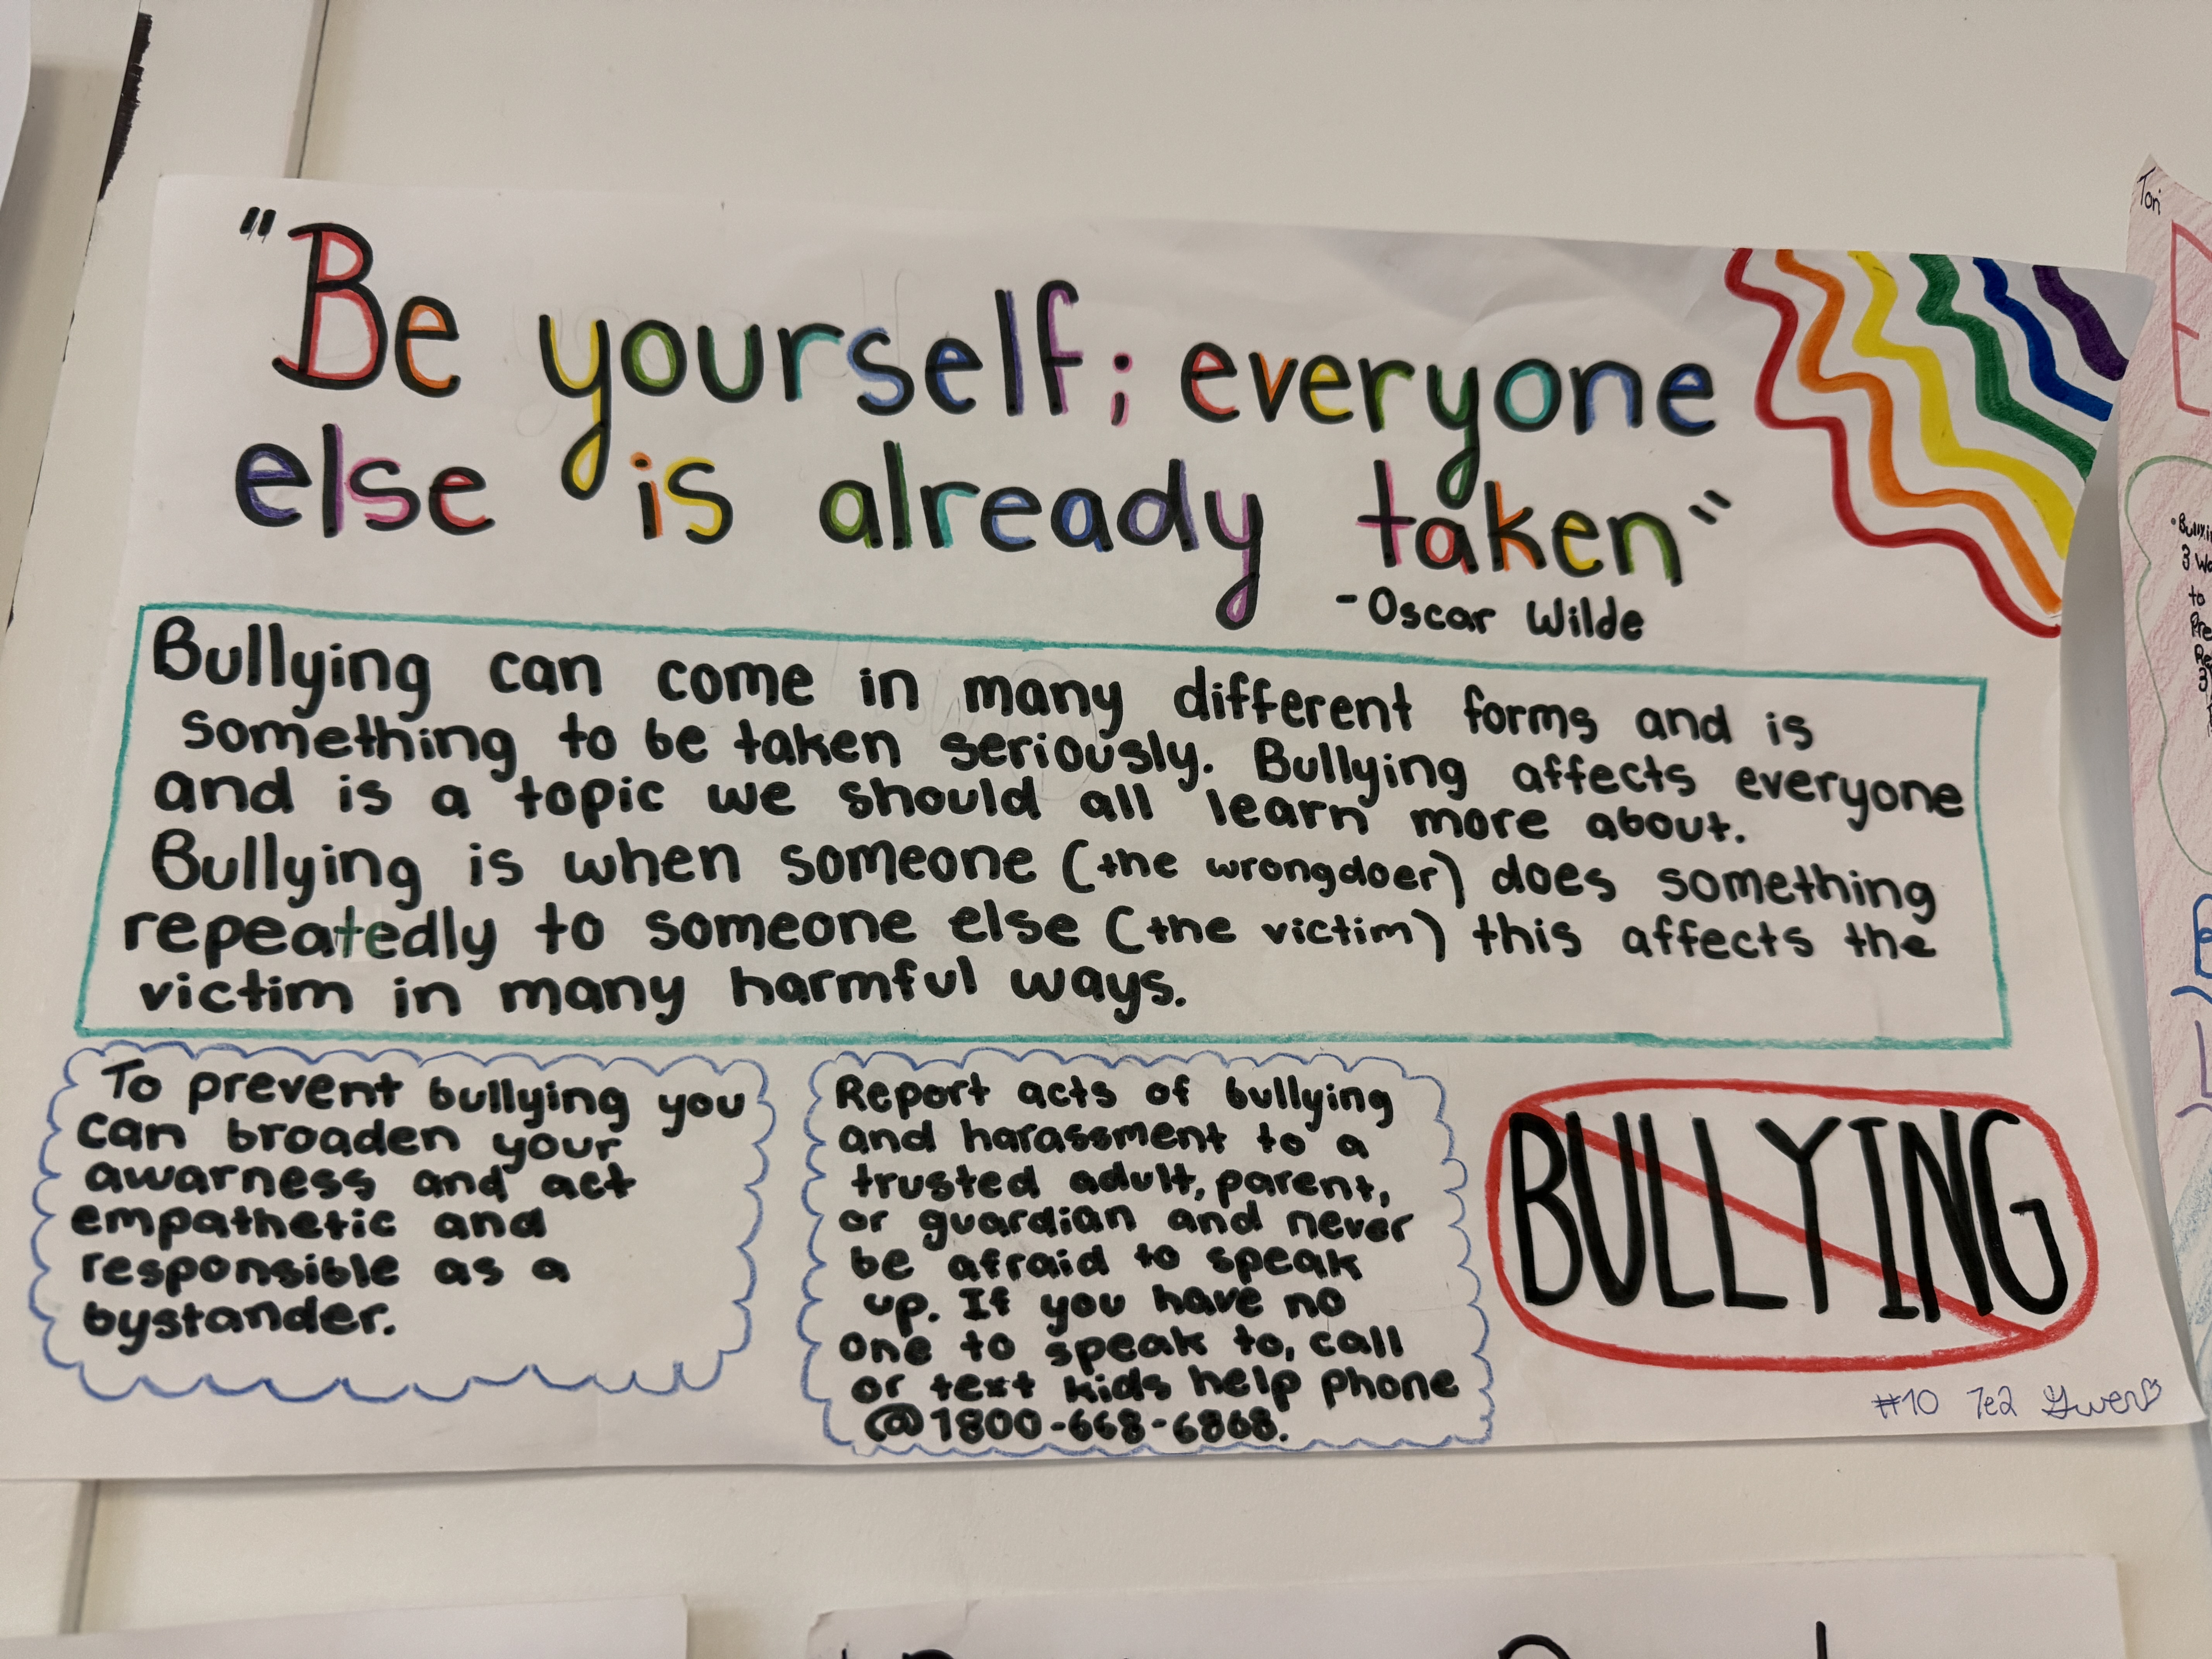 "Be yourself; everyone
else is already taken"
-Oscar Wilde
Bullying can come in many different forms and is
something to be taken seriously. Bullying affects everyone
and is a topic we should all learn more about.
Bullying is when someone (the wrongdoer) does something
repeatedly to someone else (the victim) this affects the
victim in many harmful ways.
To prevent bullying you
can broaden your
awarness and act
empathetic and
responsible as a
bystander.
Report acts of bullying
and harassment to a
trusted adult, parent,
or guardian and never
be afraid to speak
up. If you have no
one to speak to, call
or text kids help phone
@1800-668-6868.
BULLYING
#10 7e2 Gwen
Tori
3
to